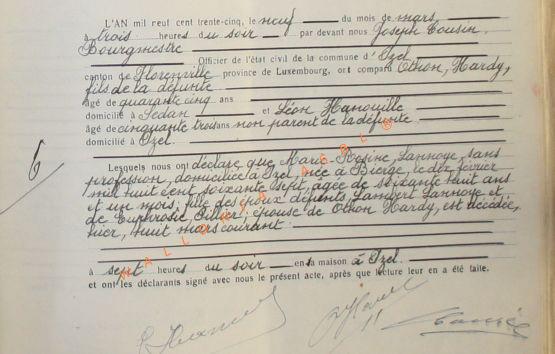 L'AN mil neuf cent trente-cinq, le neuf du mois de mars
à trois heures du soir par devant nous Joseph Cousin,
Bourgmestre
Officier de l'état civil de la commune d'Izel
canton de Florenville province de Luxembourg, ont comparu Othon, Hardy,
fils de la défunte
âgé de quarante cinq ans
domicilié à Sedan et Léon Hanouille
âgé de cinquante trois ans non parent de la défunte
domicilié à Izel.
6
Lesquels nous ont déclaré que Marie-Rosine, Lannoye, sans
profession, domiciliée à Izel, née à Bierge, le dix février
mil huit cent soixante sept, âgée de soixante huit ans
et un mois, fille des époux défunts Lambert Lannoye et
de Euphrosie épouse de Othon Hardy, est décédée,
hier, huit mars courant.
à sept heures du soir en sa maison à Izel.
et ont les déclarants signé avec nous le présent acte, après que lecture leur en a été faite.